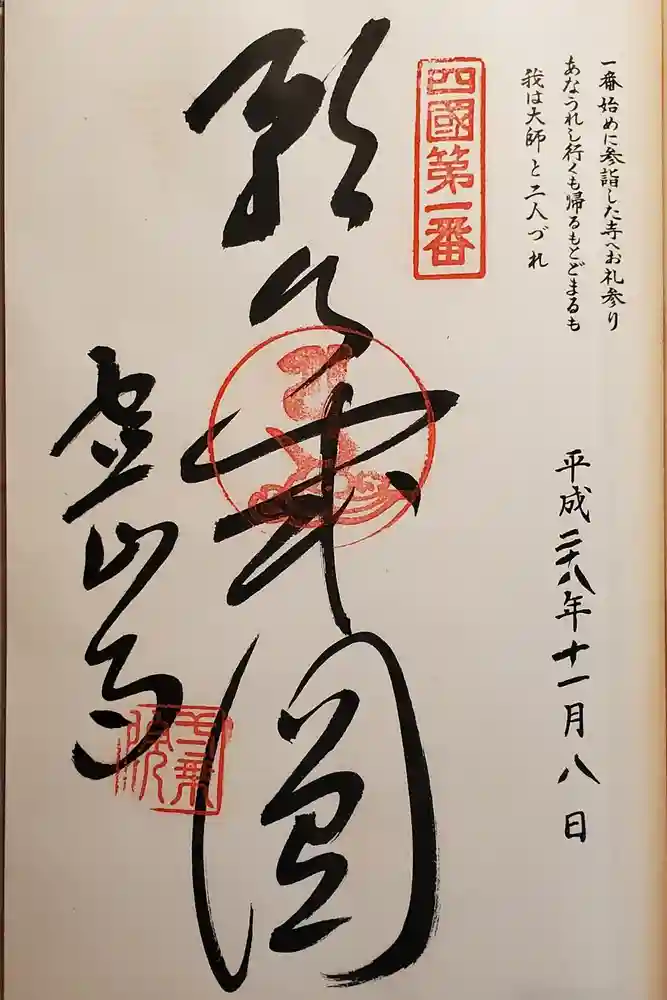 一番始めに参詣した寺へお礼参り
あなうれし行くも帰るもとどまるも
我は大師と二人づれ
平成二十八年十一月八日
四國第一番
願 圓
霊山寺